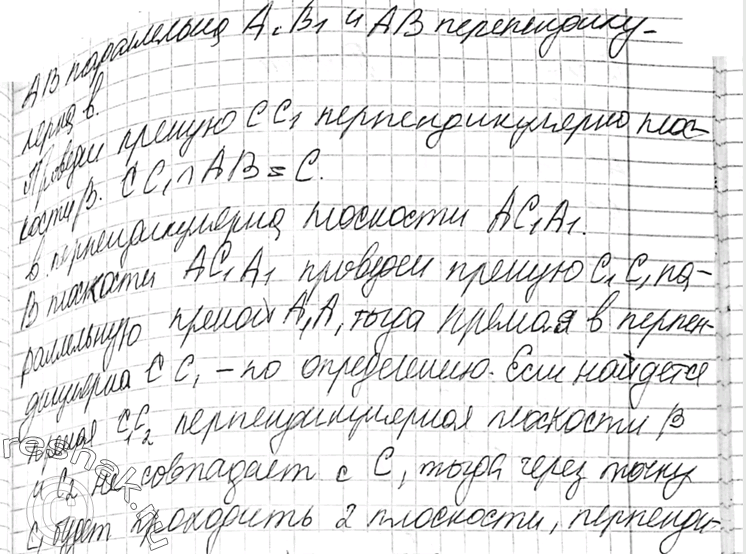 АВ параллельна А₁В₁ и АВ перпендику-
лярна в.
Проведем прямую СС₁ перпендикулярно плос-
кости β. СС₁∩АВ=С.
в перпендикулярна плоскости АС₁А₁.
В плоскости АС₁А₁ проведем прямую С₁С, па-
раллельную прямой А₁А, тогда прямая в перпен-
дикулярна СС₁ – по определению. Если найдется
прямая С₁С₂ перпендикулярная плоскости β
и С₂ не совпадает с С, тогда через точку
С₁ будет проходить 2 плоскости, перпенди-
reshak.ru